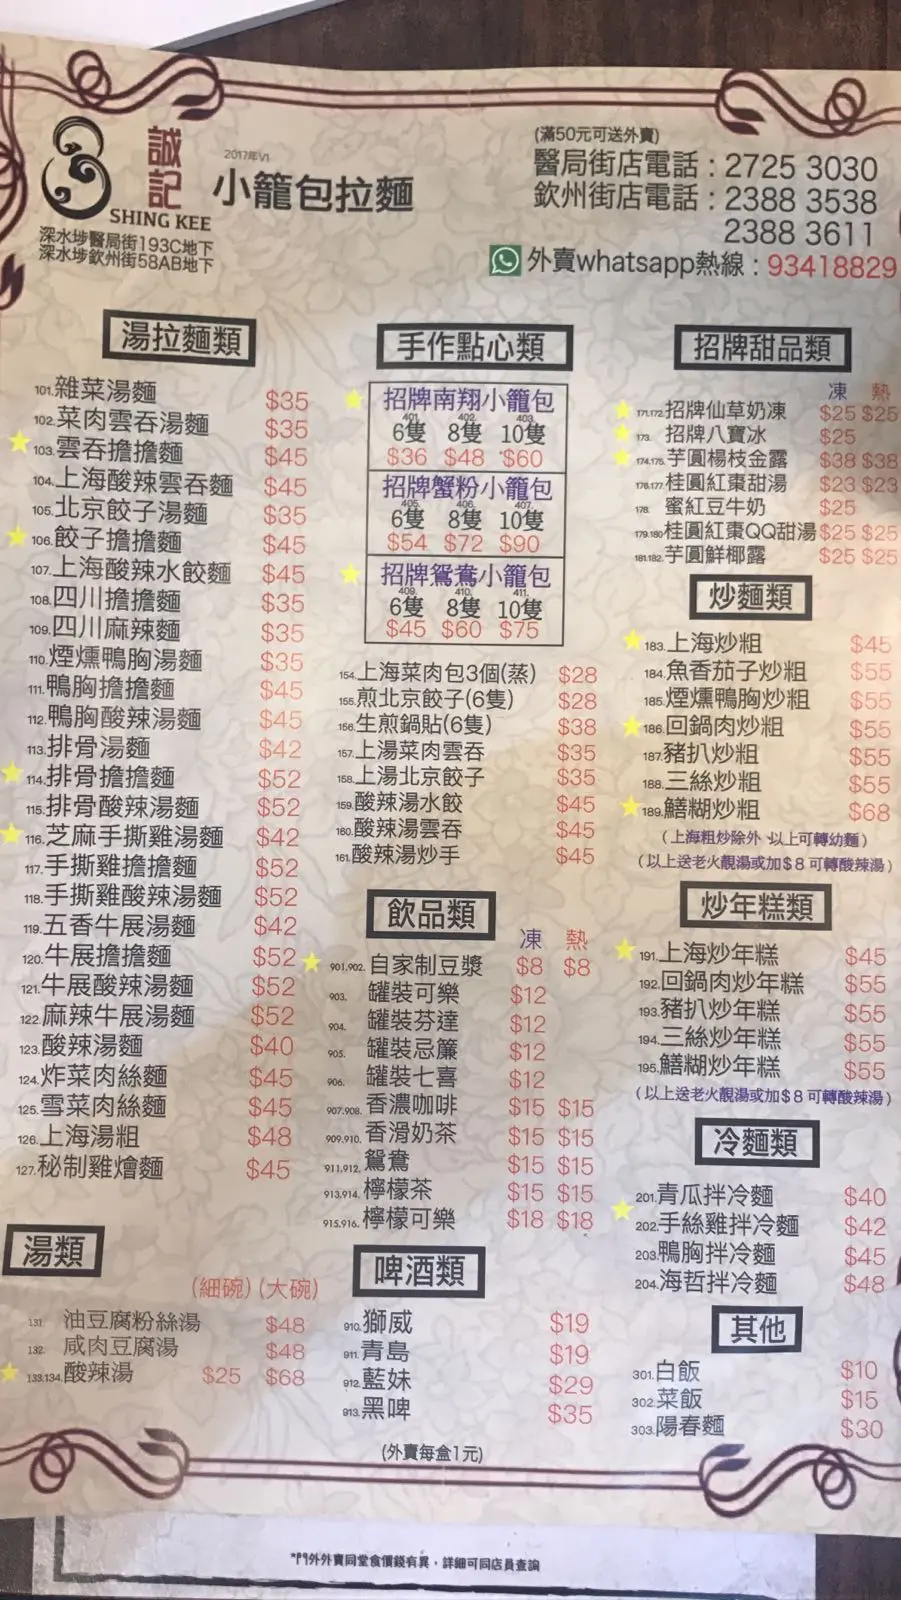 誠記
SHING KEE
2017年V1
小籠包拉麵
深水埗醫局街193C地下
深水埗欽州街58AB地下
(滿50元可送外賣)
醫局街店電話：2725 3030
欽州街店電話：2388 3538
2388 3611
外賣whatsapp熱線：93418829
湯拉麵類
101.雜菜湯麵 $35
102.菜肉雲吞湯麵 $35
103.雲吞擔擔麵 $45
104.上海酸辣雲吞麵 $45
105.北京餃子湯麵 $35
106.餃子擔擔麵 $45
107.上海酸辣水餃麵 $45
108.四川擔擔麵 $35
109.四川麻辣麵 $35
110.煙燻鴨胸湯麵 $35
111.鴨胸擔擔麵 $45
112.鴨胸酸辣湯麵 $45
113.排骨湯麵 $42
114.排骨擔擔麵 $52
115.排骨酸辣湯麵 $52
116.芝麻手撕雞湯麵 $42
117.手撕雞擔擔麵 $52
118.手撕雞酸辣湯麵 $52
119.五香牛展湯麵 $42
120.牛展擔擔麵 $52
121.牛展酸辣湯麵 $52
122.麻辣牛展湯麵 $52
123.酸辣湯麵 $40
124.炸菜肉絲麵 $45
125.雪菜肉絲麵 $45
126.上海湯粗 $48
127.秘制雞燴麵 $45
湯類
(細碗) (大碗)
131. 油豆腐粉絲湯 $48
132. 咸肉豆腐湯 $48
133.134.酸辣湯 $25 $68
手作點心類
招牌南翔小籠包
401. 402. 403.
6隻 8隻 10隻
$36 $48 $60
招牌蟹粉小籠包
405. 406. 407.
6隻 8隻 10隻
$54 $72 $90
招牌鴛鴦小籠包
409. 410. 411.
6隻 8隻 10隻
$45 $60 $75
154.上海菜肉包3個(蒸) $28
155.煎北京餃子(6隻) $28
156.生煎鍋貼(6隻) $38
157.上湯菜肉雲吞 $35
158.上湯北京餃子 $35
159.酸辣湯水餃 $45
160.酸辣湯雲吞 $45
161.酸辣湯炒手 $45
飲品類
凍 熱
901.902.自家制豆漿 $8 $8
903. 罐裝可樂 $12
904. 罐裝芬達 $12
905. 罐裝忌簾 $12
906. 罐裝七喜 $12
907.908.香濃咖啡 $15 $15
909.910.香滑奶茶 $15 $15
911.912.鴛鴦 $15 $15
913.914.檸檬茶 $15 $15
915.916.檸檬可樂 $18 $18
啤酒類
910.獅威 $19
911.青島 $19
912.藍妹 $29
913.黑啤 $35
(外賣每盒1元)
招牌甜品類
凍 熱
171.172.招牌仙草奶凍 $25 $25
173. 招牌八寶冰 $25
174.175.芋圓楊枝金露 $38 $38
176.177.桂圓紅棗甜湯 $23 $23
178. 蜜紅豆牛奶 $25
179.180.桂圓紅棗QQ甜湯 $25 $25
181.182.芋圓鮮椰露 $25 $25
炒麵類
183.上海炒粗 $45
184.魚香茄子炒粗 $55
185.煙燻鴨胸炒粗 $55
186.回鍋肉炒粗 $55
187.豬扒炒粗 $55
188.三絲炒粗 $55
189.鱔糊炒粗 $68
(上海粗炒除外 以上可轉幼麵)
(以上送老火靚湯或加$8可轉酸辣湯)
炒年糕類
191.上海炒年糕 $45
192.回鍋肉炒年糕 $55
193.豬扒炒年糕 $55
194.三絲炒年糕 $55
195.鱔糊炒年糕 $55
(以上送老火靚湯或加$8可轉酸辣湯)
冷麵類
201.青瓜拌冷麵 $40
202.手絲雞拌冷麵 $42
203.鴨胸拌冷麵 $45
204.海哲拌冷麵 $48
其他
301.白飯 $10
302.菜飯 $15
303.陽春麵 $30
*門外外賣同堂食價錢有異，詳細可同店員查詢